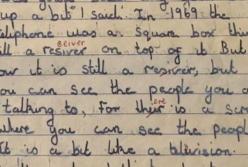 up a bit" I said. In 1969 the
telephone was a square box thi
ill a resiver on top of it But
ow it is still a resiver, but
ou can see the people you a
talking to, For ther is a sc
where you can see the people
It is a bit like a tilivision.